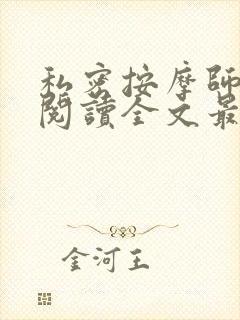 私密按摩師
閱讀全文最
金河王